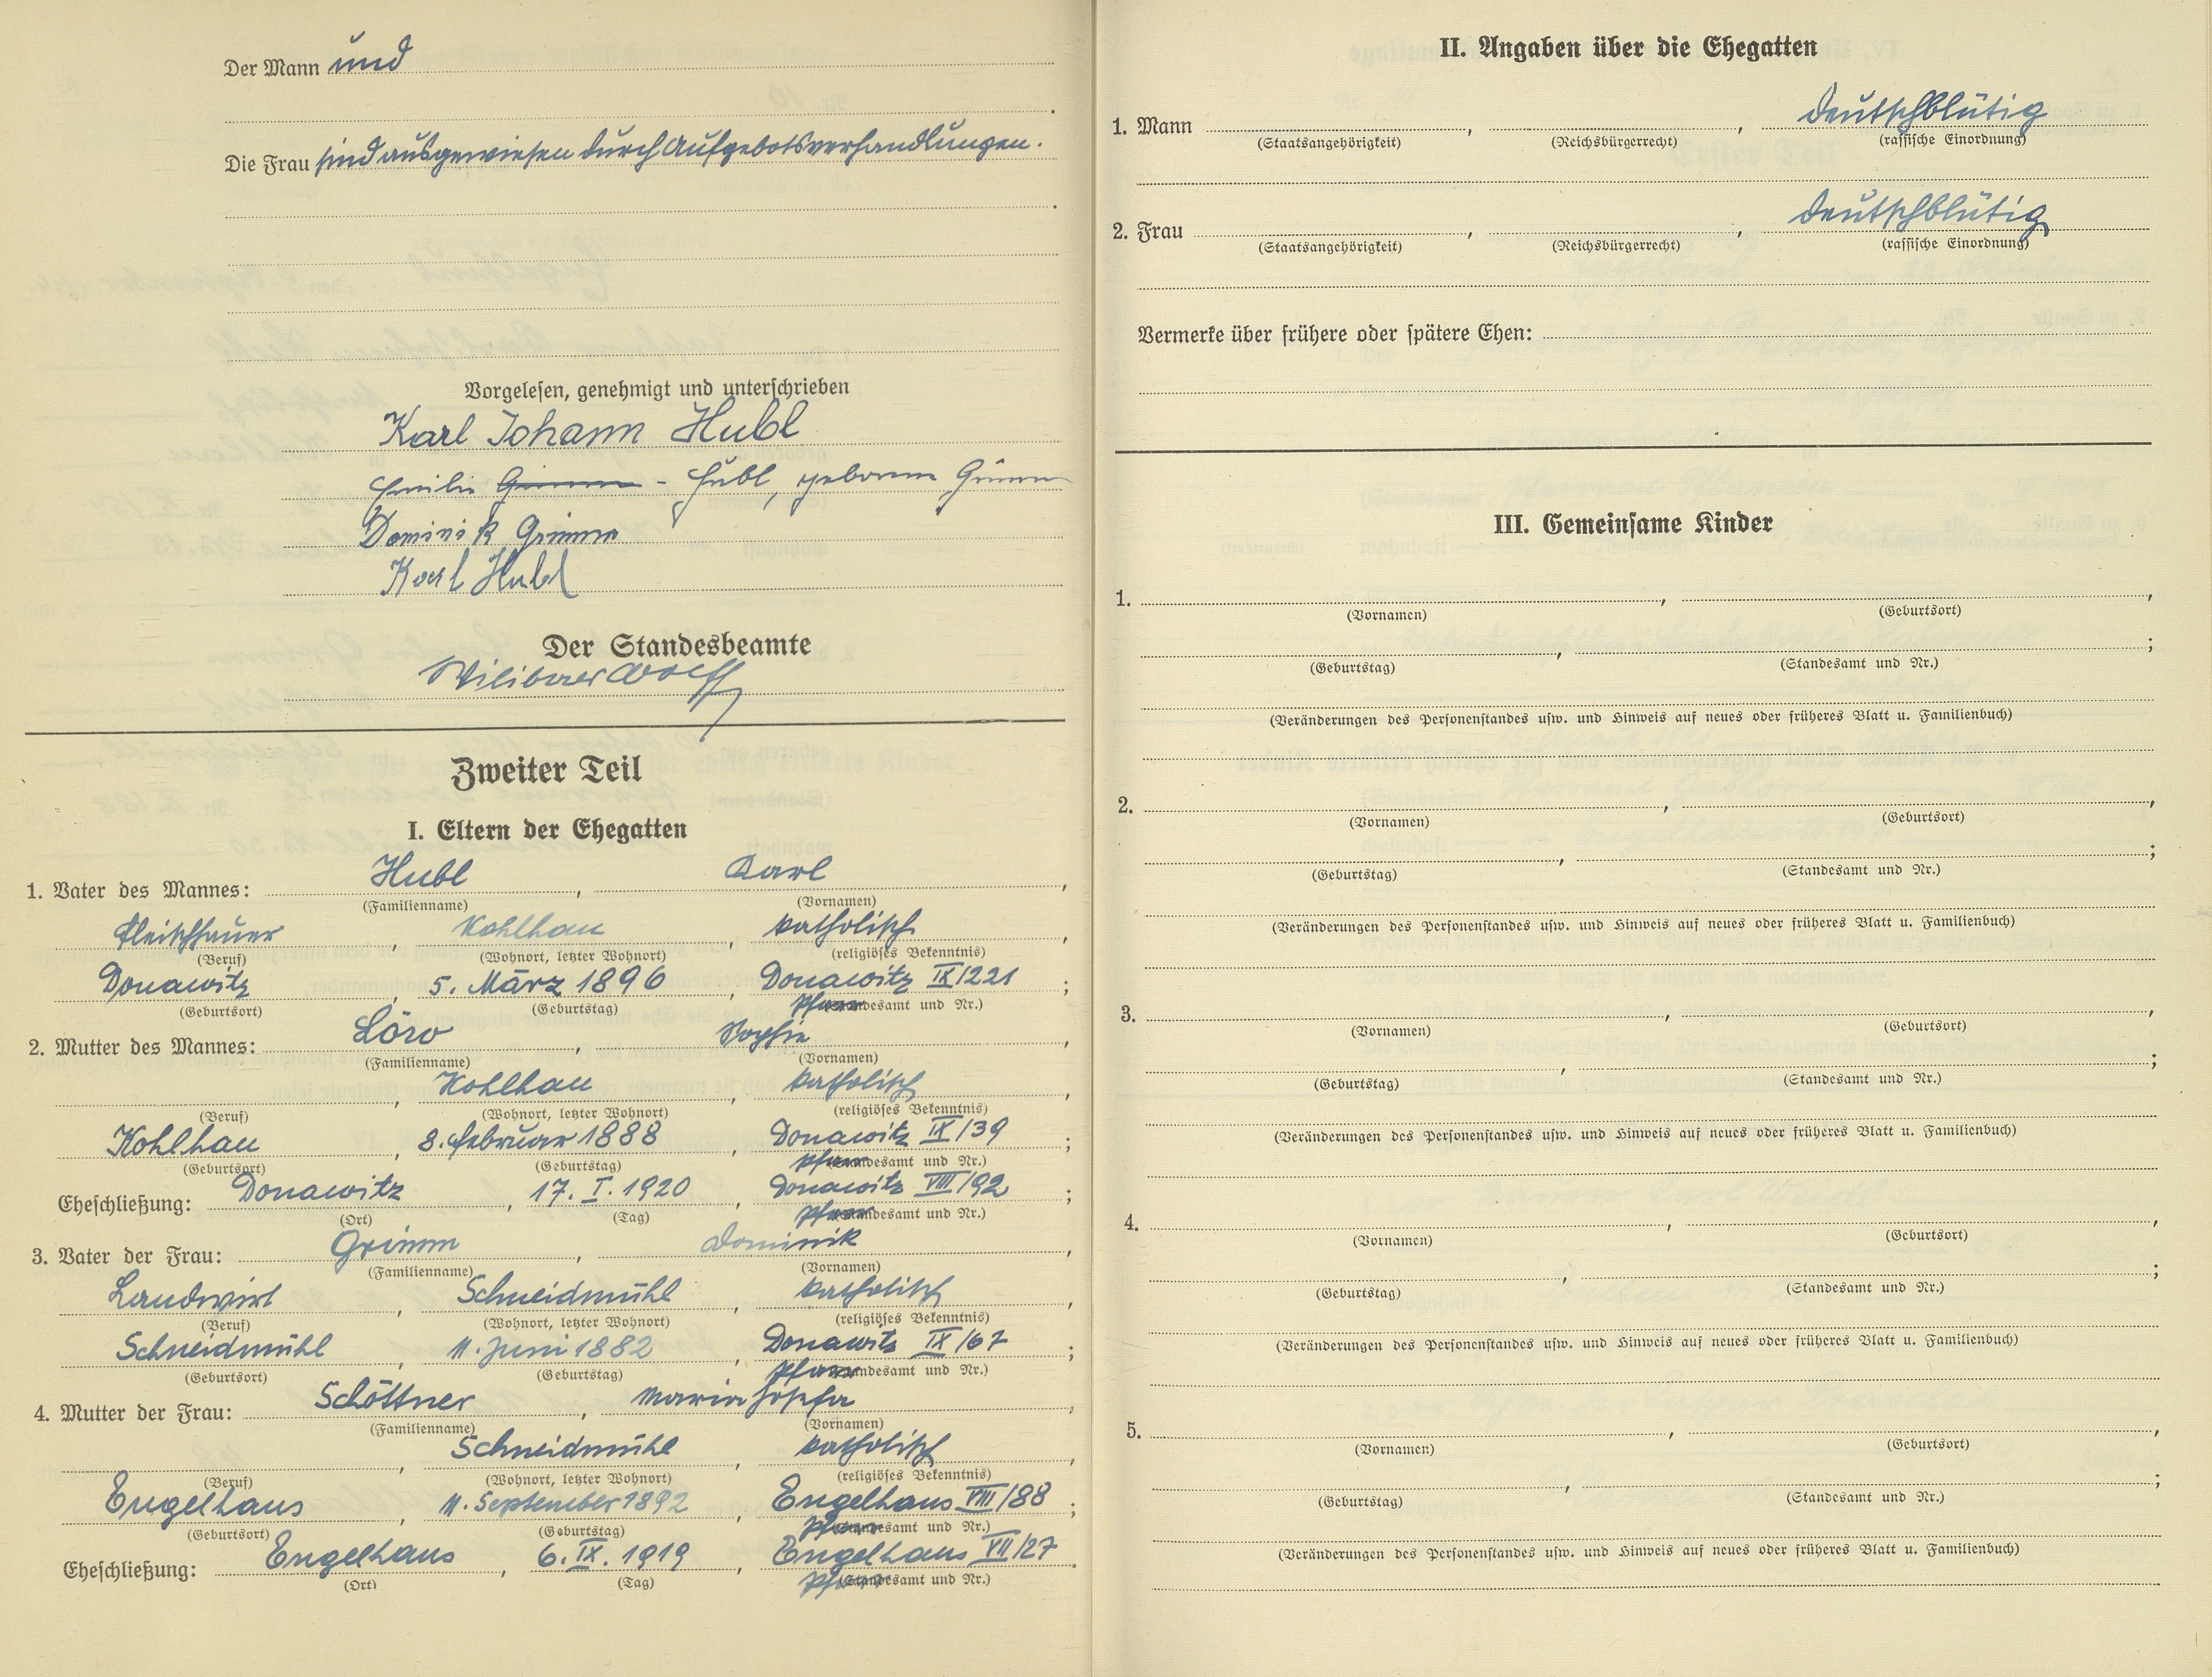 Der Mann und
.
Die Frau sind ausgewiesen durch Aufgebotsverhandlungen.
.
Vorgelesen, genehmigt und unterschrieben
Karl Johann Hubl
Emilie Grimm - Hubl, geborene Grimm
Dominik Grimm
Karl Hubl
Der Standesbeamte
Zweiter Teil
I. Eltern der Ehegatten
1. Vater des Mannes: Hubl, Karl,
(Familienname) (Vornamen)
Fleischhauer, Kohlhau, katholisch,
(Beruf) (Wohnort, letzter Wohnort) (religiöses Bekenntnis)
Donawitz, 5. März 1896, Donawitz IX/221;
(Geburtsort) (Geburtstag) Pfarramt und Nr.)
2. Mutter des Mannes: Löw, Sophie,
(Familienname) (Vornamen)
, Kohlhau, katholisch,
(Beruf) (Wohnort, letzter Wohnort) (religiöses Bekenntnis)
Kohlhau, 8. Februar 1888, Donawitz IX/39;
(Geburtsort) (Geburtstag) Pfarramt und Nr.)
Eheschließung: Donawitz, 17. I. 1920, Donawitz VIII/92;
(Ort) (Tag) Pfarramt und Nr.)
3. Vater der Frau: Grimm, Dominik,
(Familienname) (Vornamen)
Landwirt, Schneidmühl, katholisch,
(Beruf) (Wohnort, letzter Wohnort) (religiöses Bekenntnis)
Schneidmühl, 11. Juni 1882, Donawitz IX/67;
(Geburtsort) (Geburtstag) Pfarramt und Nr.)
4. Mutter der Frau: Schöttner, Maria Josefa,
(Familienname) (Vornamen)
, Schneidmühl, katholisch,
(Beruf) (Wohnort, letzter Wohnort) (religiöses Bekenntnis)
Engelhaus, 11. September 1892, Engelhaus VIII/88;
(Geburtsort) (Geburtstag) Pfarramt und Nr.)
Eheschließung: Engelhaus, 6. IX. 1919, Engelhaus VII/27.
(Ort) (Tag) Pfarramt und Nr.)
II. Angaben über die Ehegatten
1. Mann , , deutschblütig
(Staatsangehörigkeit) (Reichsbürgerrecht) (rassische Einordnung)
2. Frau , , deutschblütig
(Staatsangehörigkeit) (Reichsbürgerrecht) (rassische Einordnung)
Vermerke über frühere oder spätere Ehen:
III. Gemeinsame Kinder
1. , ,
(Vornamen) (Geburtsort)
, ;
(Geburtstag) (Standesamt und Nr.)
(Veränderungen des Personenstandes usw. und Hinweis auf neues oder früheres Blatt u. Familienbuch)
2. , ,
(Vornamen) (Geburtsort)
, ;
(Geburtstag) (Standesamt und Nr.)
(Veränderungen des Personenstandes usw. und Hinweis auf neues oder früheres Blatt u. Familienbuch)
3. , ,
(Vornamen) (Geburtsort)
, ;
(Geburtstag) (Standesamt und Nr.)
(Veränderungen des Personenstandes usw. und Hinweis auf neues oder früheres Blatt u. Familienbuch)
4. , ,
(Vornamen) (Geburtsort)
, ;
(Geburtstag) (Standesamt und Nr.)
(Veränderungen des Personenstandes usw. und Hinweis auf neues oder früheres Blatt u. Familienbuch)
5. , ,
(Vornamen) (Geburtsort)
, ;
(Geburtstag) (Standesamt und Nr.)
(Veränderungen des Personenstandes usw. und Hinweis auf neues oder früheres Blatt u. Familienbuch)